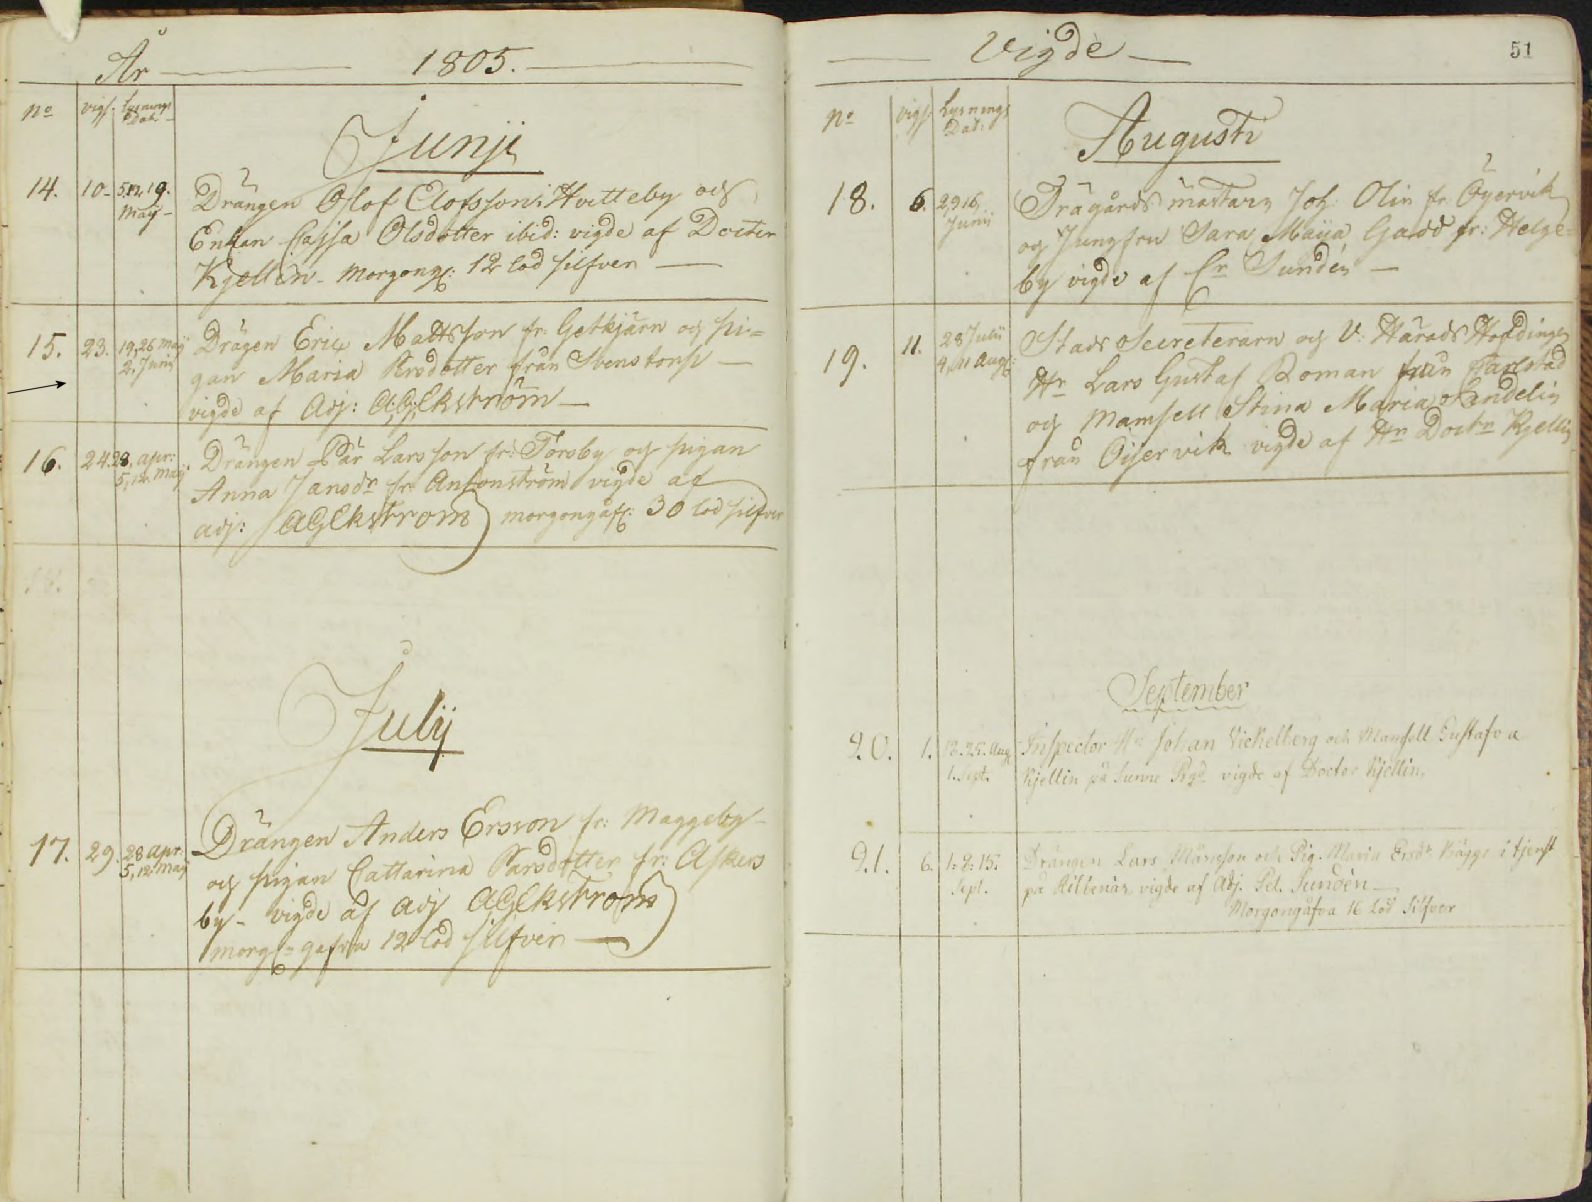 År 1805.
No vigs. Lysnings Dat:
Junji
14. 10. 5, 12, 19. Maij Drängen Olof Elofsson i Hvitteby och
Enkan Cajsa Olsdotter ibid: vigde af Doctor
Kjellin. Morgong: 12 lod silfver
15. 23. 19, 26 Maij 2. Junii Drägen Eric Mattsson fr: Getkjärn og pi=
gan Maria Persdotter från Svenstorp
vigde af Adj: AGEkström
16. 24. 28. apr: 5, 12. Maij Drängen Pär Larsson fr: Torsby og pigan
Anna Jansdr fr Antonström vigde af
adj: AGEkström morgongåf: 30 lod silfver
Julij
17. 29. 28 apr. 5, 12 Maij Drängen Anders Ersson fr: Maggeby
og pigan Cattarina Parsdotter fr: Askers
by - vigde af adj AGEkström
morgongafva 12 lod silfver
Vigde 51
No vigs. Lysnings Dat:
Augusti
18. 6. 2, 9, 16, Junii Trägårds mästarn Joh: Olin fr: Öyervik
og Jungfru Sara Maija fr: Helge=
by vigde af Cr Sundén
19. 11. 28 Julii 4, 11 Aug: Stads Secreterarn og V: Härads Höfdingen
Hr Lars Gustaf Roman från Carlstad
og Mamsell Stina Maria Sandelin
från Öijervik vigde af Hr Doctr Kjellin
September
20. 1. 18. 25. Aug 1. Sept. Inspector Hr Johan Vickelberg och Mamsell Gustafva
Kjellin på Sunne Pr.gd vigde af Doctor Kjellin.
21. 6. 1. 8. 15. Sept. Drängen Lars Månsson och Pig. Maria Ersdr Bägge i tjenst
på vigde af Adj. Pet. Sundén
Morgongåfva 16 Lod Silfver